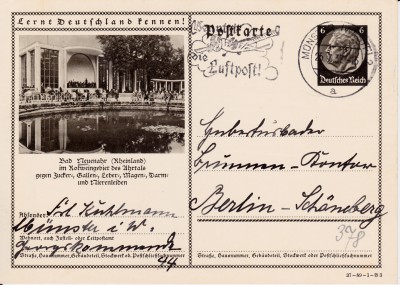 Lernt Deutschland kennen!
Bad Neuenahr (Rheinland)
im Rotweingebiet des Ahrtals
gegen Zucker-, Gallen-, Leber-, Magen-, Darm-
und Nierenleiden
Absender:
Kuhlmann
Münster i. W.
Wohnort, auch Zustell- oder Leitpostamt
44
Straße, Hausnummer, Gebäudeteil, Stockwerk od. Postschließfachnummer
Postkarte
die
Luftpost!
6 6
Deutsches Reich
a
Hubertusbader
Brunnen-Kontor
Berlin-Schöneberg
Straße, Hausnummer, Gebäudeteil, Stockwerk oder Postschließfachnummer